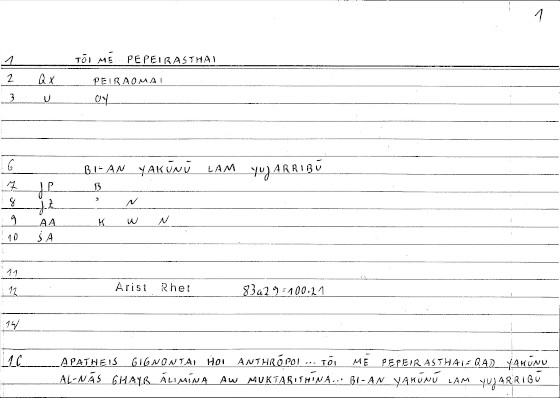 1
1 TŌI MĒ PEPEIRASTHAI
2 QX PEIRAOMAI
3 U OY
6 BI-AN YAKŪNŪ LAM YUJARRIBŪ
7 JP B
8 JZ ʾ N
9 AA K W N
10 ŚA
11
12 Arist Rhet 83a29=100.21
14
16 APATHEIS GIGNONTAI HOI ANTHRŌPOI... TŌI MĒ PEPEIRASTHAI=QAD YAKŪNU
AL-NĀS GHAYR ĀLIMĪNA AW MUKTARITHĪNA... BI-AN YAKŪNŪ LAM YUJARRIBŪ